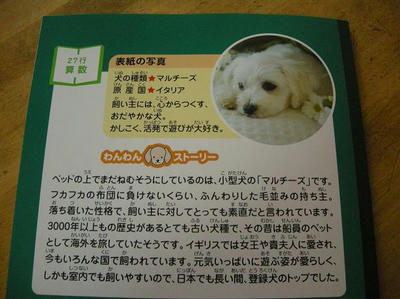 27行
算数
表紙の写真
犬の種類★マルチーズ
原産国★イタリア
飼い主には、心からつくす、
おだやかな犬。
かしこく、活発で遊びが大好き。
わんわんストーリー
ベッドの上でまだねむそうにしているのは、小型犬の「マルチーズ」です。
フカフカの布団に負けないくらい、ふんわりした毛並みの持ち主。
落ち着いた性格で、飼い主に対してとっても素直だと言われています。
3000年以上もの歴史があるとても古い犬種で、その昔は船員のペット
として海外を旅していたそうです。イギリスでは女王や貴夫人に愛され、
今もいろんな国で飼われています。元気いっぱいに遊ぶ姿が愛らしく、
しかも室内でも飼いやすいので、日本でも長い間、登録犬のトップでした。